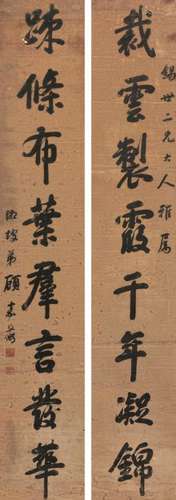 裁雲製霞千年凝錦
錫世二兄大人雅屬
疎條布葉羣言發華
弟顧